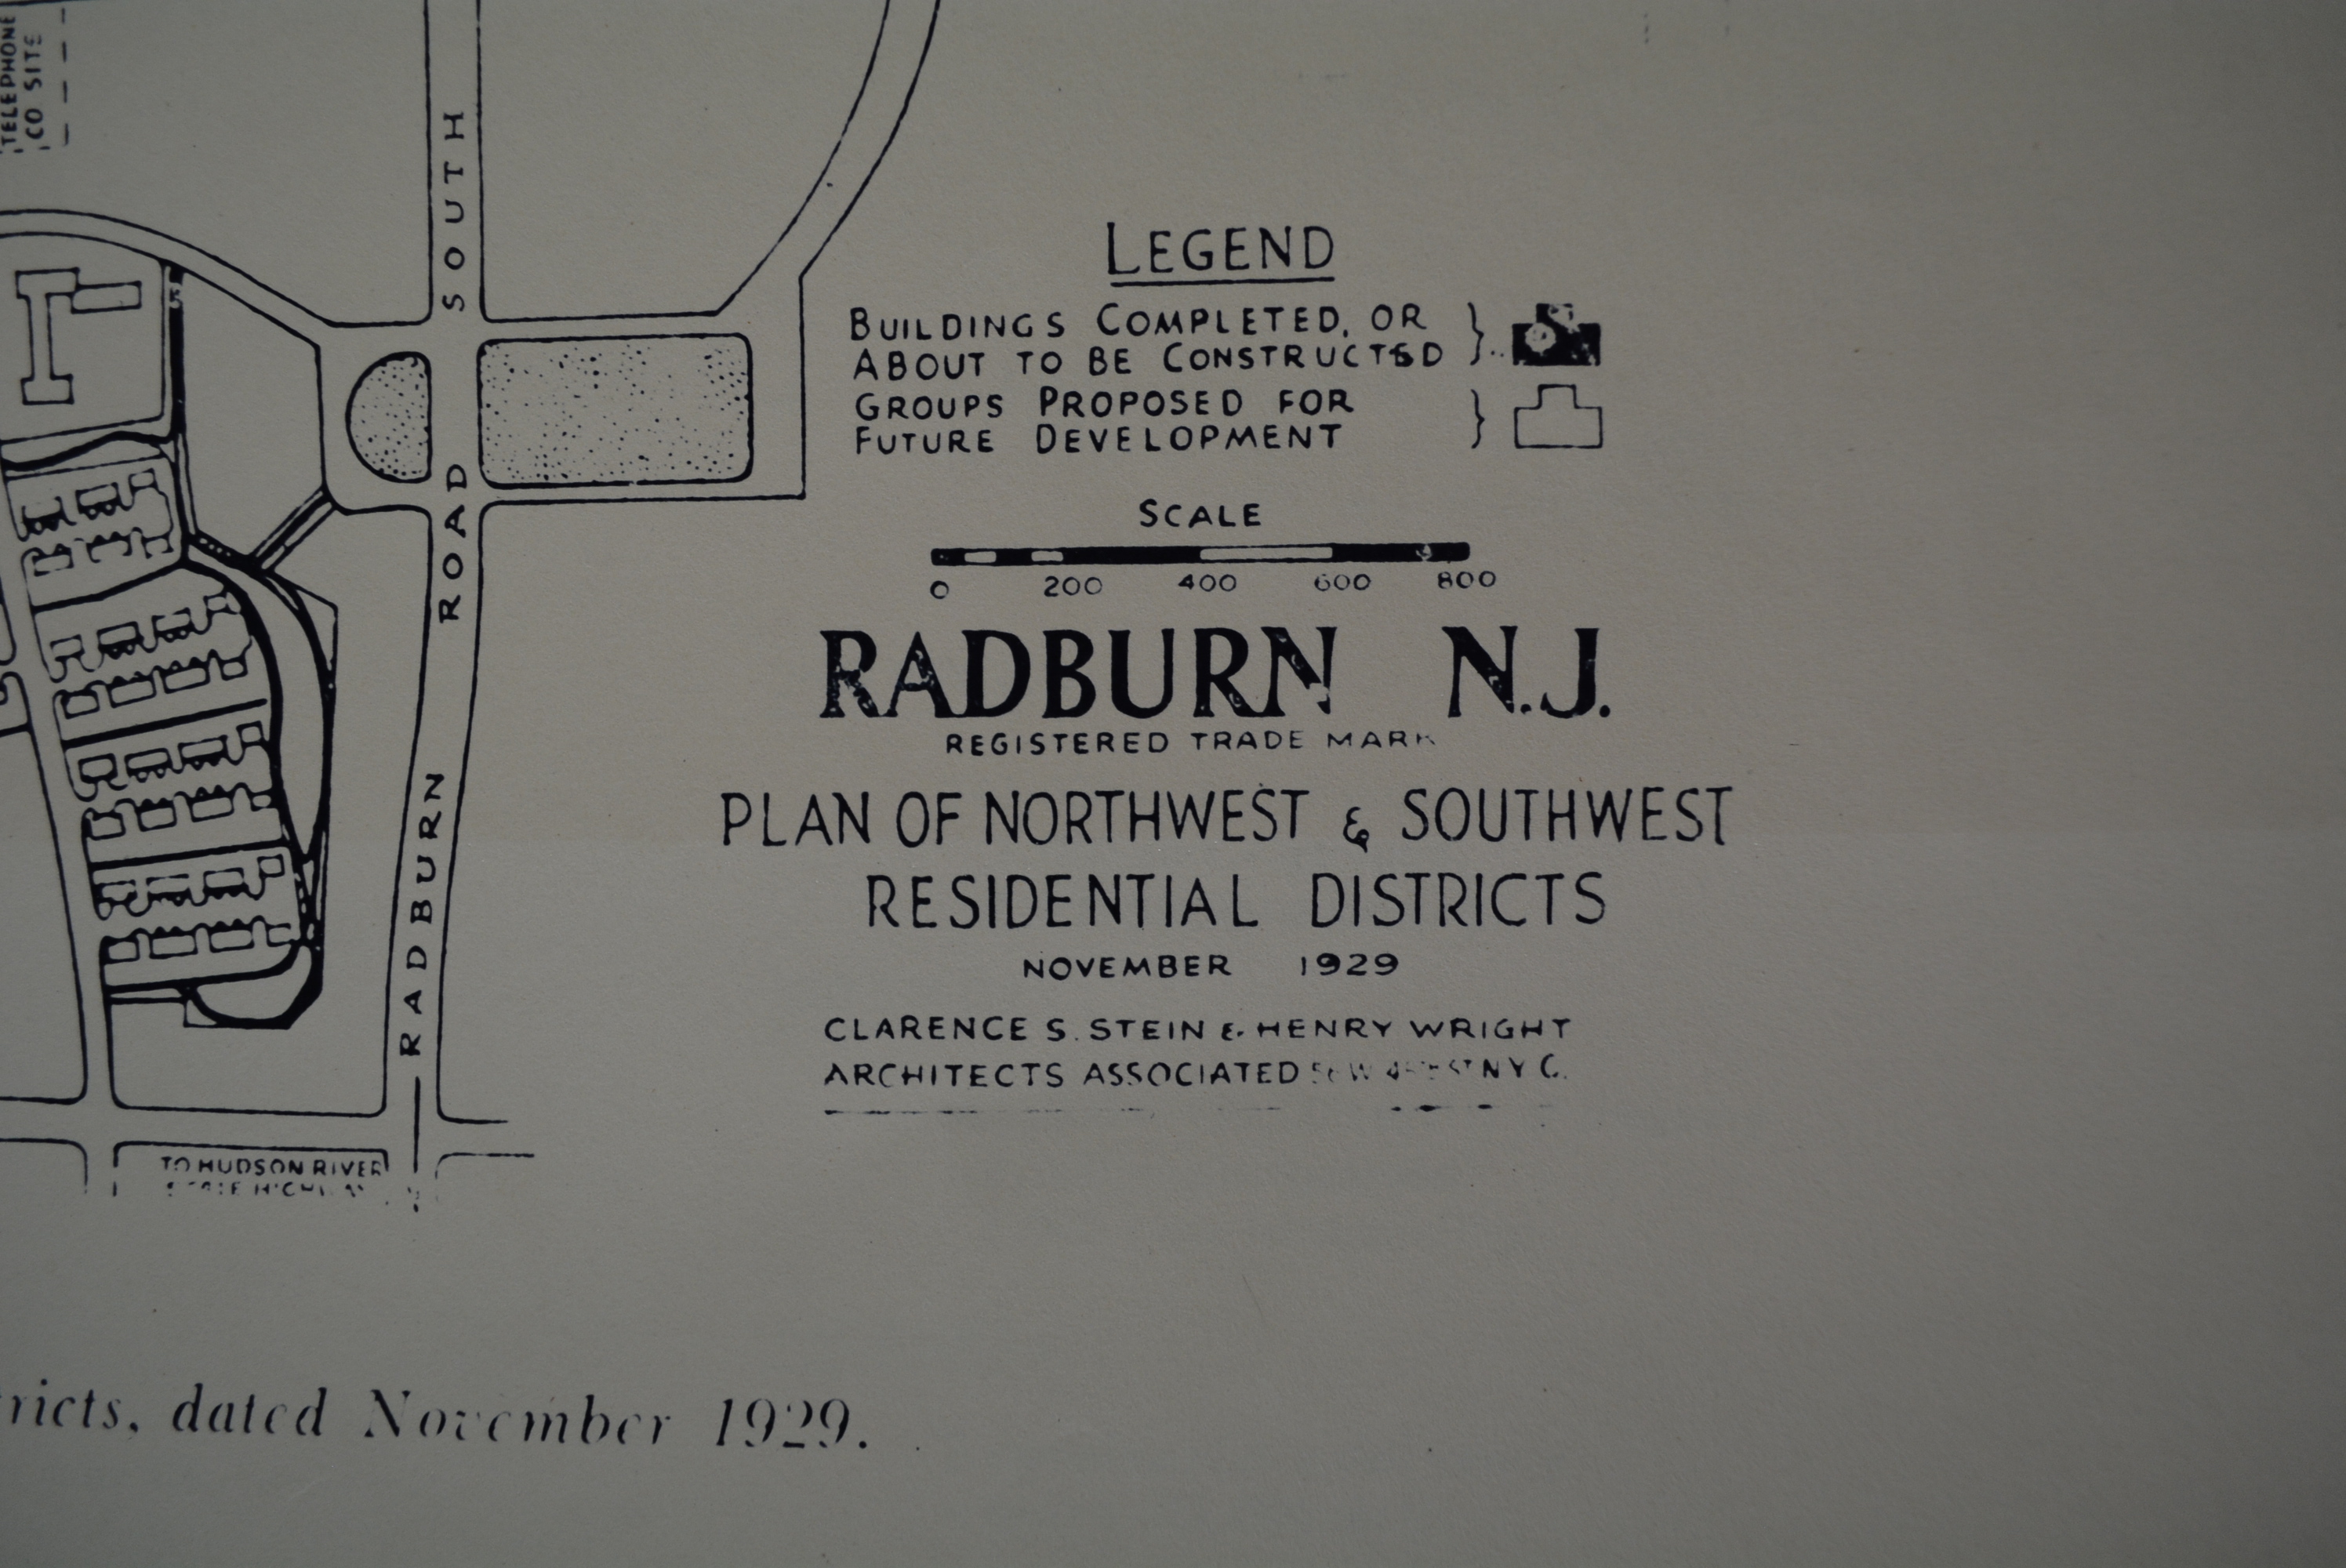 TELEPHONE
CO SITE
SOUTH
RADBURN ROAD
LEGEND
BUILDINGS COMPLETED, OR
ABOUT TO BE CONSTRUCTED
GROUPS PROPOSED FOR
FUTURE DEVELOPMENT
SCALE
0 200 400 600 800
RADBURN N.J.
REGISTERED TRADE MARK
PLAN OF NORTHWEST & SOUTHWEST
RESIDENTIAL DISTRICTS
NOVEMBER 1929
CLARENCE S. STEIN & HENRY WRIGHT
ARCHITECTS ASSOCIATED N Y C.
TO HUDSON RIVER
tricts, dated November 1929.